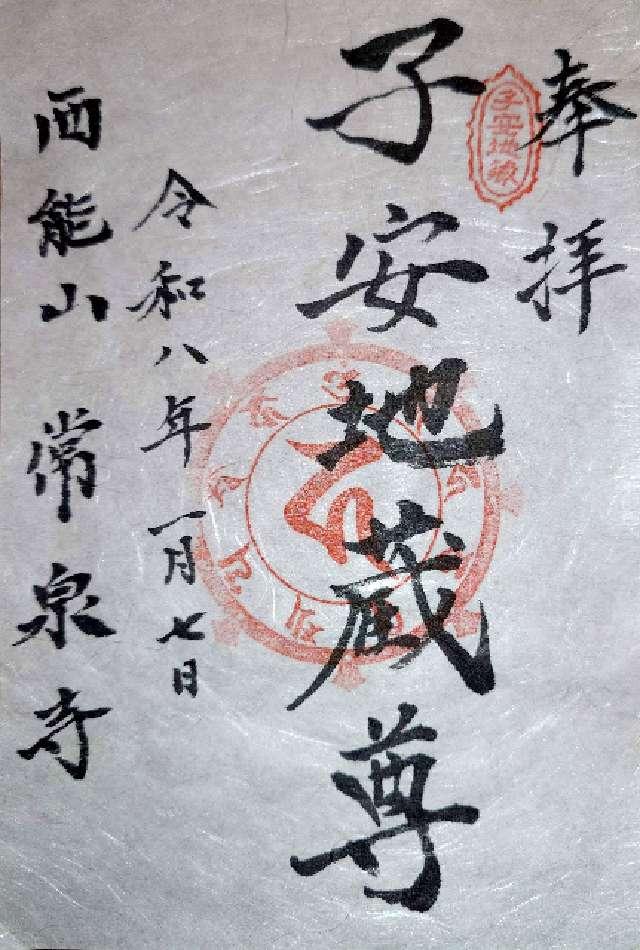 奉拝
子安地蔵
子安地蔵尊
令和八年一月七日
西能山 常泉寺